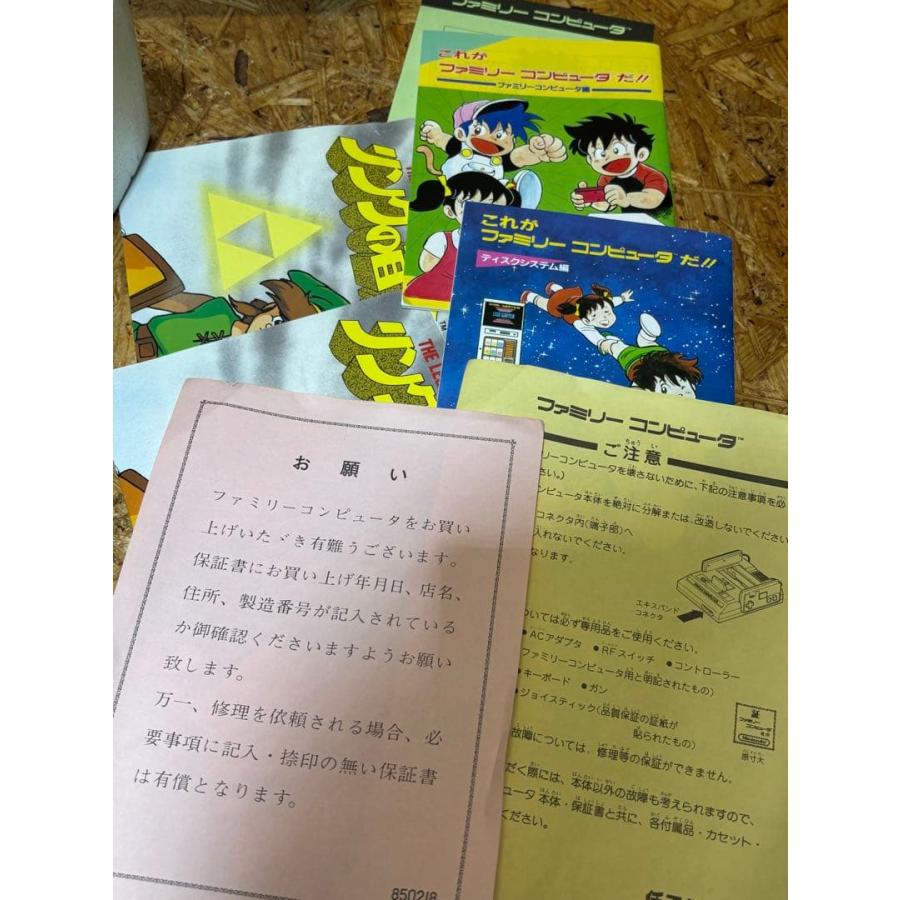 ファミリー コンピュータ™
これが
ファミリー コンピュータ だ!!
ファミリーコンピュータ編
これが
ファミリー コンピュータ だ!!
ディスクシステム編
リンクの冒
リンク
THE LE
お願い
ファミリーコンピュータをお買い
上げいたゞき有難うございます。
保証書にお買い上げ年月日、店名、
住所、製造番号が記入されている
か御確認くださいますようお願い
致します。
万一、修理を依頼される場合、必
要事項に記入・捺印の無い保証書
は有償となります。
850218
ファミリー コンピュータ™
ご注意
リーコンピュータを壊さないために、下記の注意事項を必
さい。)
ンピュータ本体を絶対に分解または、改造しないでください
コネクタ内(端子部)へ
入れないでください。
なります。
エキスパンド
コネクタ
ついては必ず専用品をご使用ください。
●ACアダプタ ●RFスイッチ ●コントローラー
ファミリーコンピュータ用と明記されたもの)
●キーボード ●ガン
●ジョイスティック(品質保証の証紙が
貼られたもの)
証
ファミリー
コンピュータ
Nintendo
原寸大
故障については、修理等の保証ができません。
だく際には、本体以外の故障も考えられますので、
ュータ 本体・保証書と共に、各付属品・カセット・
ください。